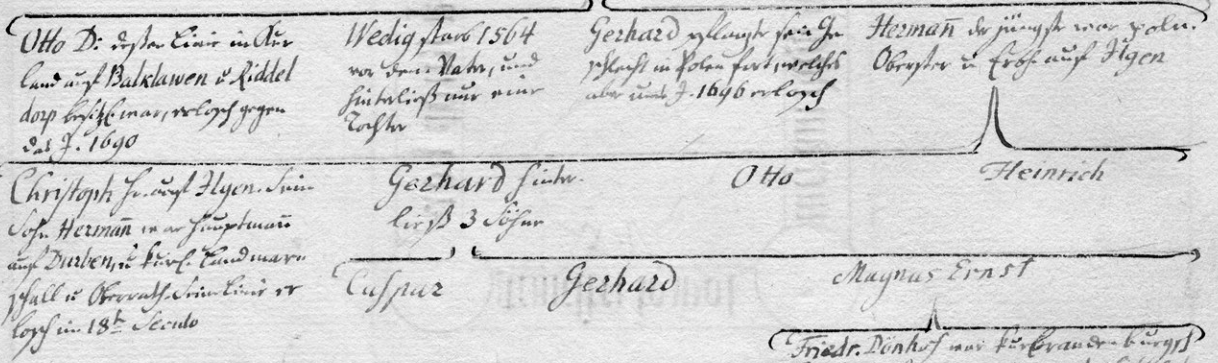 Otto D: dessen Linie in Kur
land auf Balklawen u Riddel
dorp besitzl. war, erlosch gegen
das J. 1690
Wedig starb 1564
vor dem Vater, und
hinterließ nur eine
Tochter
Gerhard pflanzte sein Ge
schlecht in Polen fort, welches
aber ums J. 1696 erlosch
Herman̄ der jüngste war poln.
Oberster u Erbh. auf Ilgen
Christoph Hr. auf Ilgen. Sein
Sohn Herman̄ war Hauptman̄
auf Durben, u kurl. Landmar
schall u Oberrath. Seine Linie er
losch im 18t Seculo
Gerhard hinter-
ließ 3 Söhne
Otto
Heinrich
Caspar
Gerhard
Magnus Ernst
Friedr. Dönhof war kurbrandenburgsch